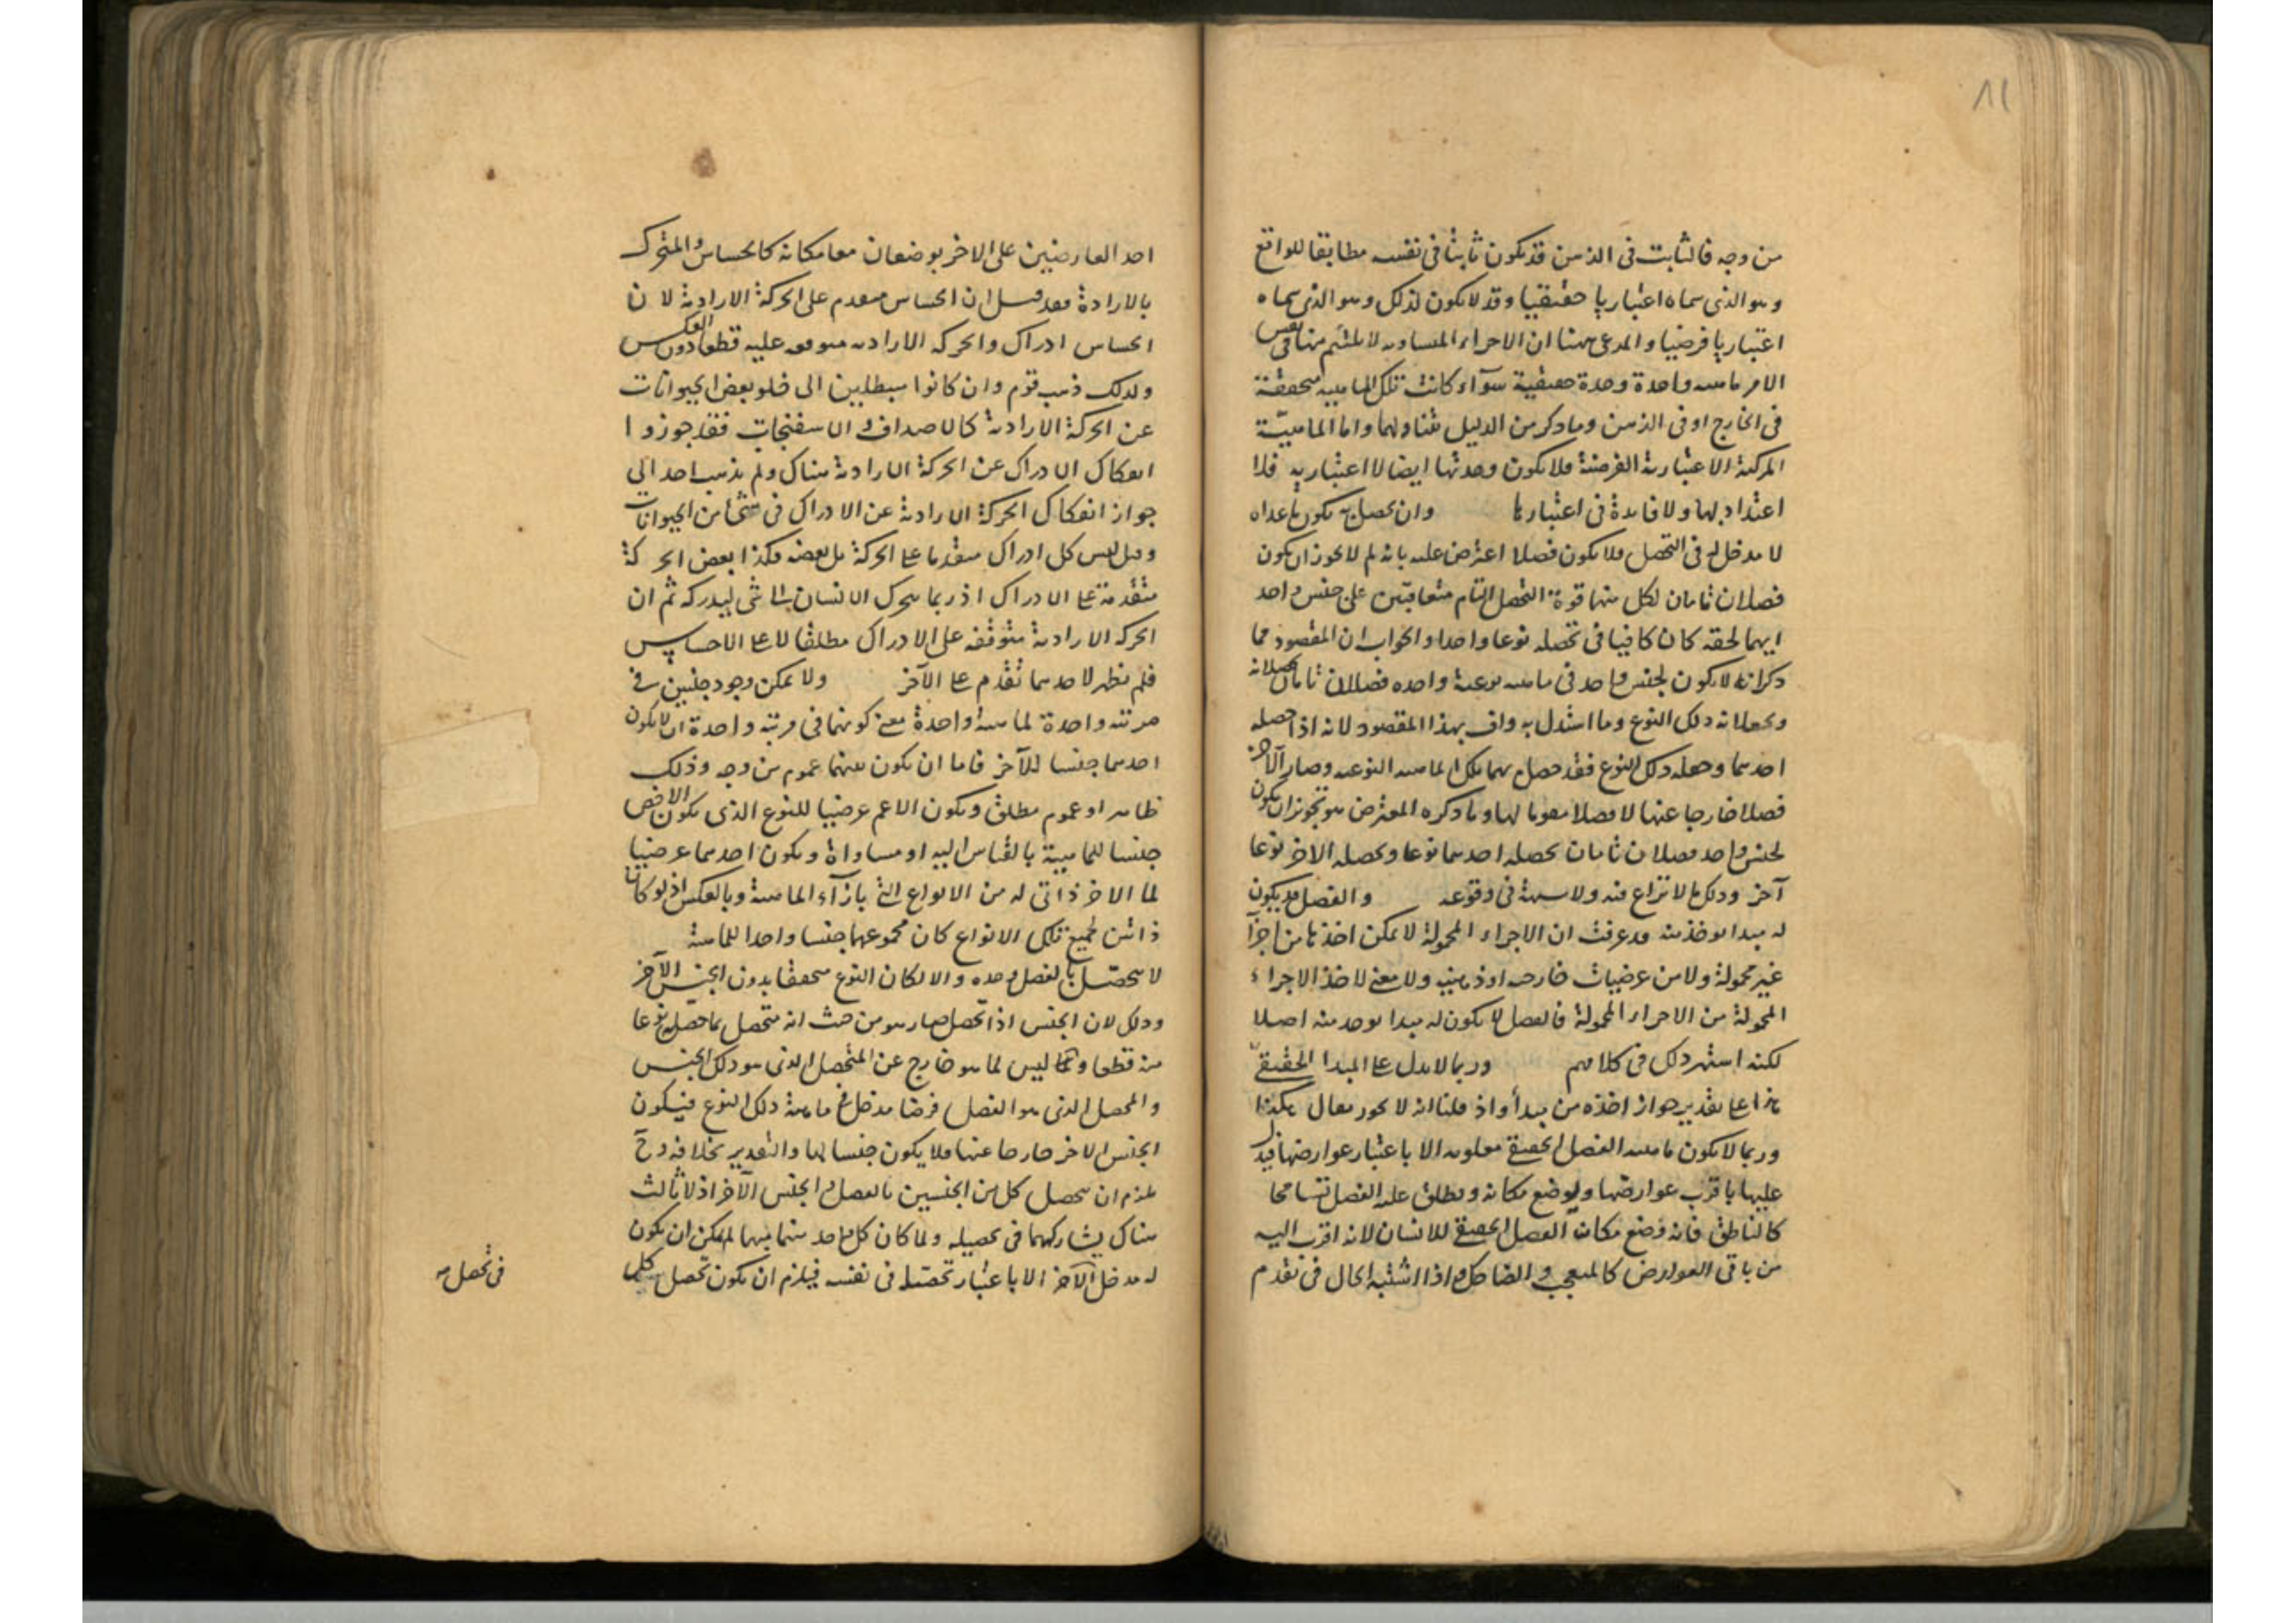 ١٨
من وجه فالثابت فى الذهن قد يكون ثابتا فى نفسه مطابقا للواقع
وهو الذى سماه اعتباريا حقيقيا وقد لا يكون لذلك وهو الذى سماه
اعتباريا فرضيا والمدعى ههنا ان الاجزاء المتساويه لا يلتئم منها فى نفس
الامر ماهيه واحدة وحدة حقيقية سوآء كانت تلك الماهيه متحققة
فى الخارج او فى الذهن وما ذكر من الدليل يتناولهما واما الماهيّة
المركبة الاعتبارية الفرضية فلا يكون وحدتها ايضا الا اعتباريه فلا
اعتداد بها ولا فايدة فى اعتبارها وان يحصل به يكون ما عداه
لا مدخل له فى التحصل فلا يكون فصلا اعترض عليه بانه لم لا يجوز ان يكون
فصلان تامان لكل منهما قوة التحصل التام متعاقبين على جنس واحد
ايهما لحقه كان كافيا فى تحصله نوعا واحدا والجواب ان المقصود مما
ذكر انه لا يكون لجنس واحد فى ماهيه نوعية واحده فصلان تامان يحصلانه
ويجعلانه ذلك النوع وما استدل به واف بهذا المقصود لانه اذا حصله
احدهما وجعله ذلك النوع فقد حصل بهما تلك الماهيه النوعيه وصار الآخر
فصلا خارجا عنها لا فصلا مقوما لها وما ذكره المعترض هو تجويز ان يكون
لجنس واحد فصلان تامان يحصله احدهما نوعا ويحصله الاخر نوعا
آخر وذلك ما لا نزاع فيه ولا شبهة فى وقوعه والفصل قد يكون
له مبدا يوخذ منه قد عرفت ان الاجزاء المحمولة لا يمكن اخذها من اجزآ
غير محمولة ولا من عرضيات خارجيه او ذهنيه ولا معنى لاخذ الاجزاء
المحمولة من الاجزاء المحمولة فالفصل لا يكون له مبدا يوخذ منه اصلا
لكنه اشتهر ذلك فى كلامهم وربما لا يدل على المبدا الحقيقى
هذا على تقدير جواز اخذه من مبدأ واذ قلنا انه لا يجوز يقال هكذا
وربما لا يكون ماهيه الفصل الحقيقى معلومه الا باعتبار عوارضها فيدل
عليها باقرب عوارضها ويوضع مكانه ويطلق عليه الفصل تسامحا
كالناطق فانه وضع مكان الفصل الحقيقى للانسان لانه اقرب اليه
من باقى العوارض كالمتعجب والضاحك واذا اشتبه الحال فى تقدم
احد العارضين على الاخر يوضعان معا مكانه كالحساس والمتحرك
بالارادة فقد قيل ان الحساس مقدم على الحركة الارادية لان
الحساس ادراك والحركه الاراديه متوقفه عليه قطعا دون العكس
ولذلك ذهب قوم وان كانوا مبطلين الى خلو بعض الحيوانات
عن الحركة الارادية كالاصداف والاسفنجات فقد جوزوا
انفكاك الادراك عن الحركة الارادية هناك ولم يذهب احد الى
جواز انفكاك الحركة الارادية عن الادراك فى شئ من الحيوانات
وقيل ليس كل ادراك متقدما على الحركة بل بعضه فكذا بعض الحركة
متقدمة على الادراك اذ ربما يتحرك الانسان الى شى ليدركه ثم ان
الحركه الارادية متوقفه على الادراك مطلقا لا على الاحساس
فلم يظهر لاحدهما تقدم على الآخر ولا يمكن وجود جنسين فى
مرتبه واحدة لماهيه واحدة معنى كونهما فى مرتبه واحدة ان لا يكون
احدهما جنسا للآخر فاما ان يكون بينهما عموم من وجه وذلك
ظاهر او عموم مطلق ويكون الاعم عرضيا للنوع الذى يكون الاخص
جنسا للماهية بالقياس اليه او مساواة ويكون احدهما عرضيا
لما الاخر ذاتى له من الانواع التى بازآء الماهية وبالعكس اذ لو كانا
ذاتين لجميع تلك الانواع كان مجموعهما جنسا واحدا للماهية
لا يتحصّل بالفصل وحده والا لكان النوع متحققا بدون الجنس الآخر
وذلك لان الجنس اذا تحصل صار هو من حيث انه متحصل بما حصله نوعا
منه قطعا ولما ليس لما هو خارج عن المتحصل الذى هو ذلك الجنس
والمحصل الذى هو الفصل فرضا مدخل فى ماهية ذلك النوع فيكون
الجنس الاخر خارجا عنها فلا يكون جنسا لها والتقدير بخلافه وح
يلزم ان يتحصل كل من الجنسين بالفصل والجنس الآخر اذ لا ثالث
هناك يشاركهما فى تحصيله ولما كان كل واحد منهما مبهما لم يمكن ان يكون
له مدخل الآخر الا باعتبار تحصله فى نفسه فيلزم ان يكون تحصل كل
فى تحصل صه